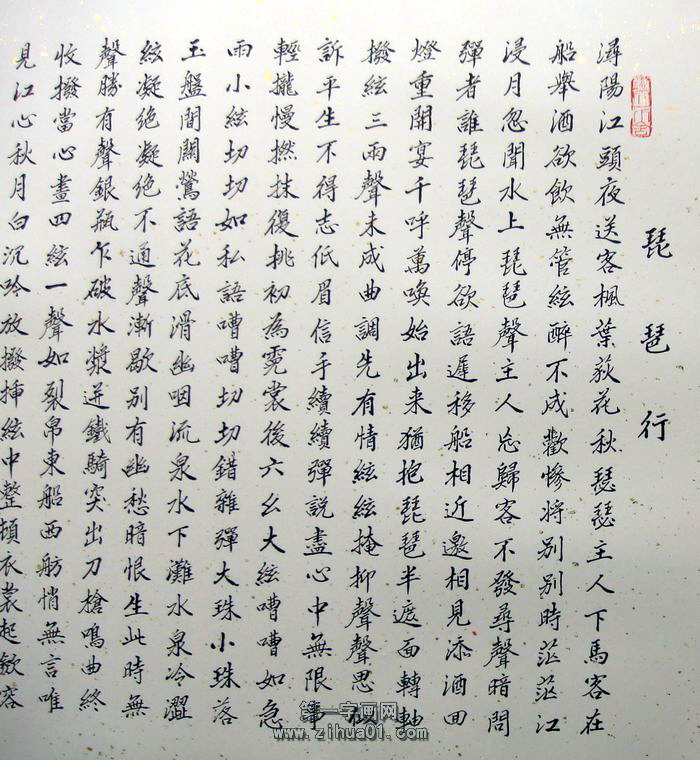 琵琶行
潯陽江頭夜送客楓葉荻花秋瑟瑟主人下馬客在
船舉酒欲飲無管絃醉不成歡慘將別別時茫茫江
浸月忽聞水上琵琶聲主人忘歸客不發尋聲暗問
彈者誰琵琶聲停欲語遲移船相近邀相見添酒回
燈重開宴千呼萬喚始出来猶抱琵琶半遮面轉軸
撥絃三兩聲未成曲調先有情絃絃掩抑聲聲思似
訴平生不得志低眉信手續續彈説盡心中無限事
輕攏慢撚抹復挑初為霓裳後六幺大絃嘈嘈如急
雨小絃切切如私語嘈嘈切切錯雜彈大珠小珠落
玉盤間關鶯語花底滑幽咽流泉水下灘水泉冷澀
絃凝絶凝絶不通聲漸歇別有幽愁暗恨生此時無
聲勝有聲銀瓶乍破水漿迸鐵騎突出刀槍鳴曲終
收撥當心畫四絃一聲如裂帛東船西舫悄無言唯
見江心秋月白沉吟放撥插絃中整頓衣裳起斂容
第一字画网
www.zihua01.com